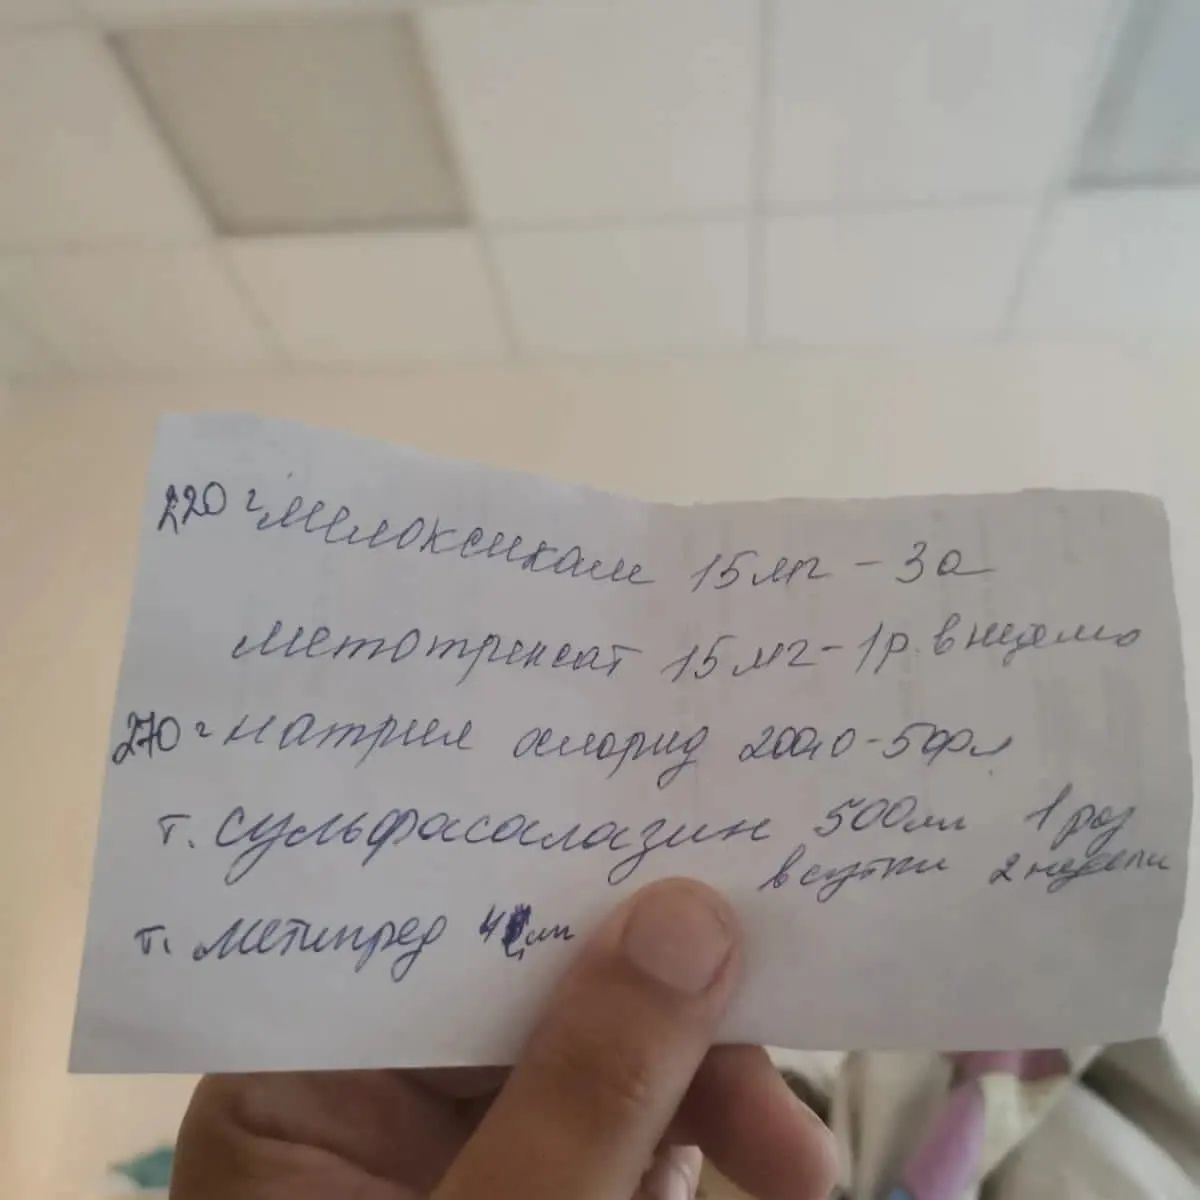 220 г мелоксикам 15мг - 3 а
метотрексат 15мг - 1 р. в неделю
270 г натрия хлорид 200,0 - 5 фл
т. сульфасалазин 500мг 1 раз
в сутки 2 недели
т. метипред 4 мг